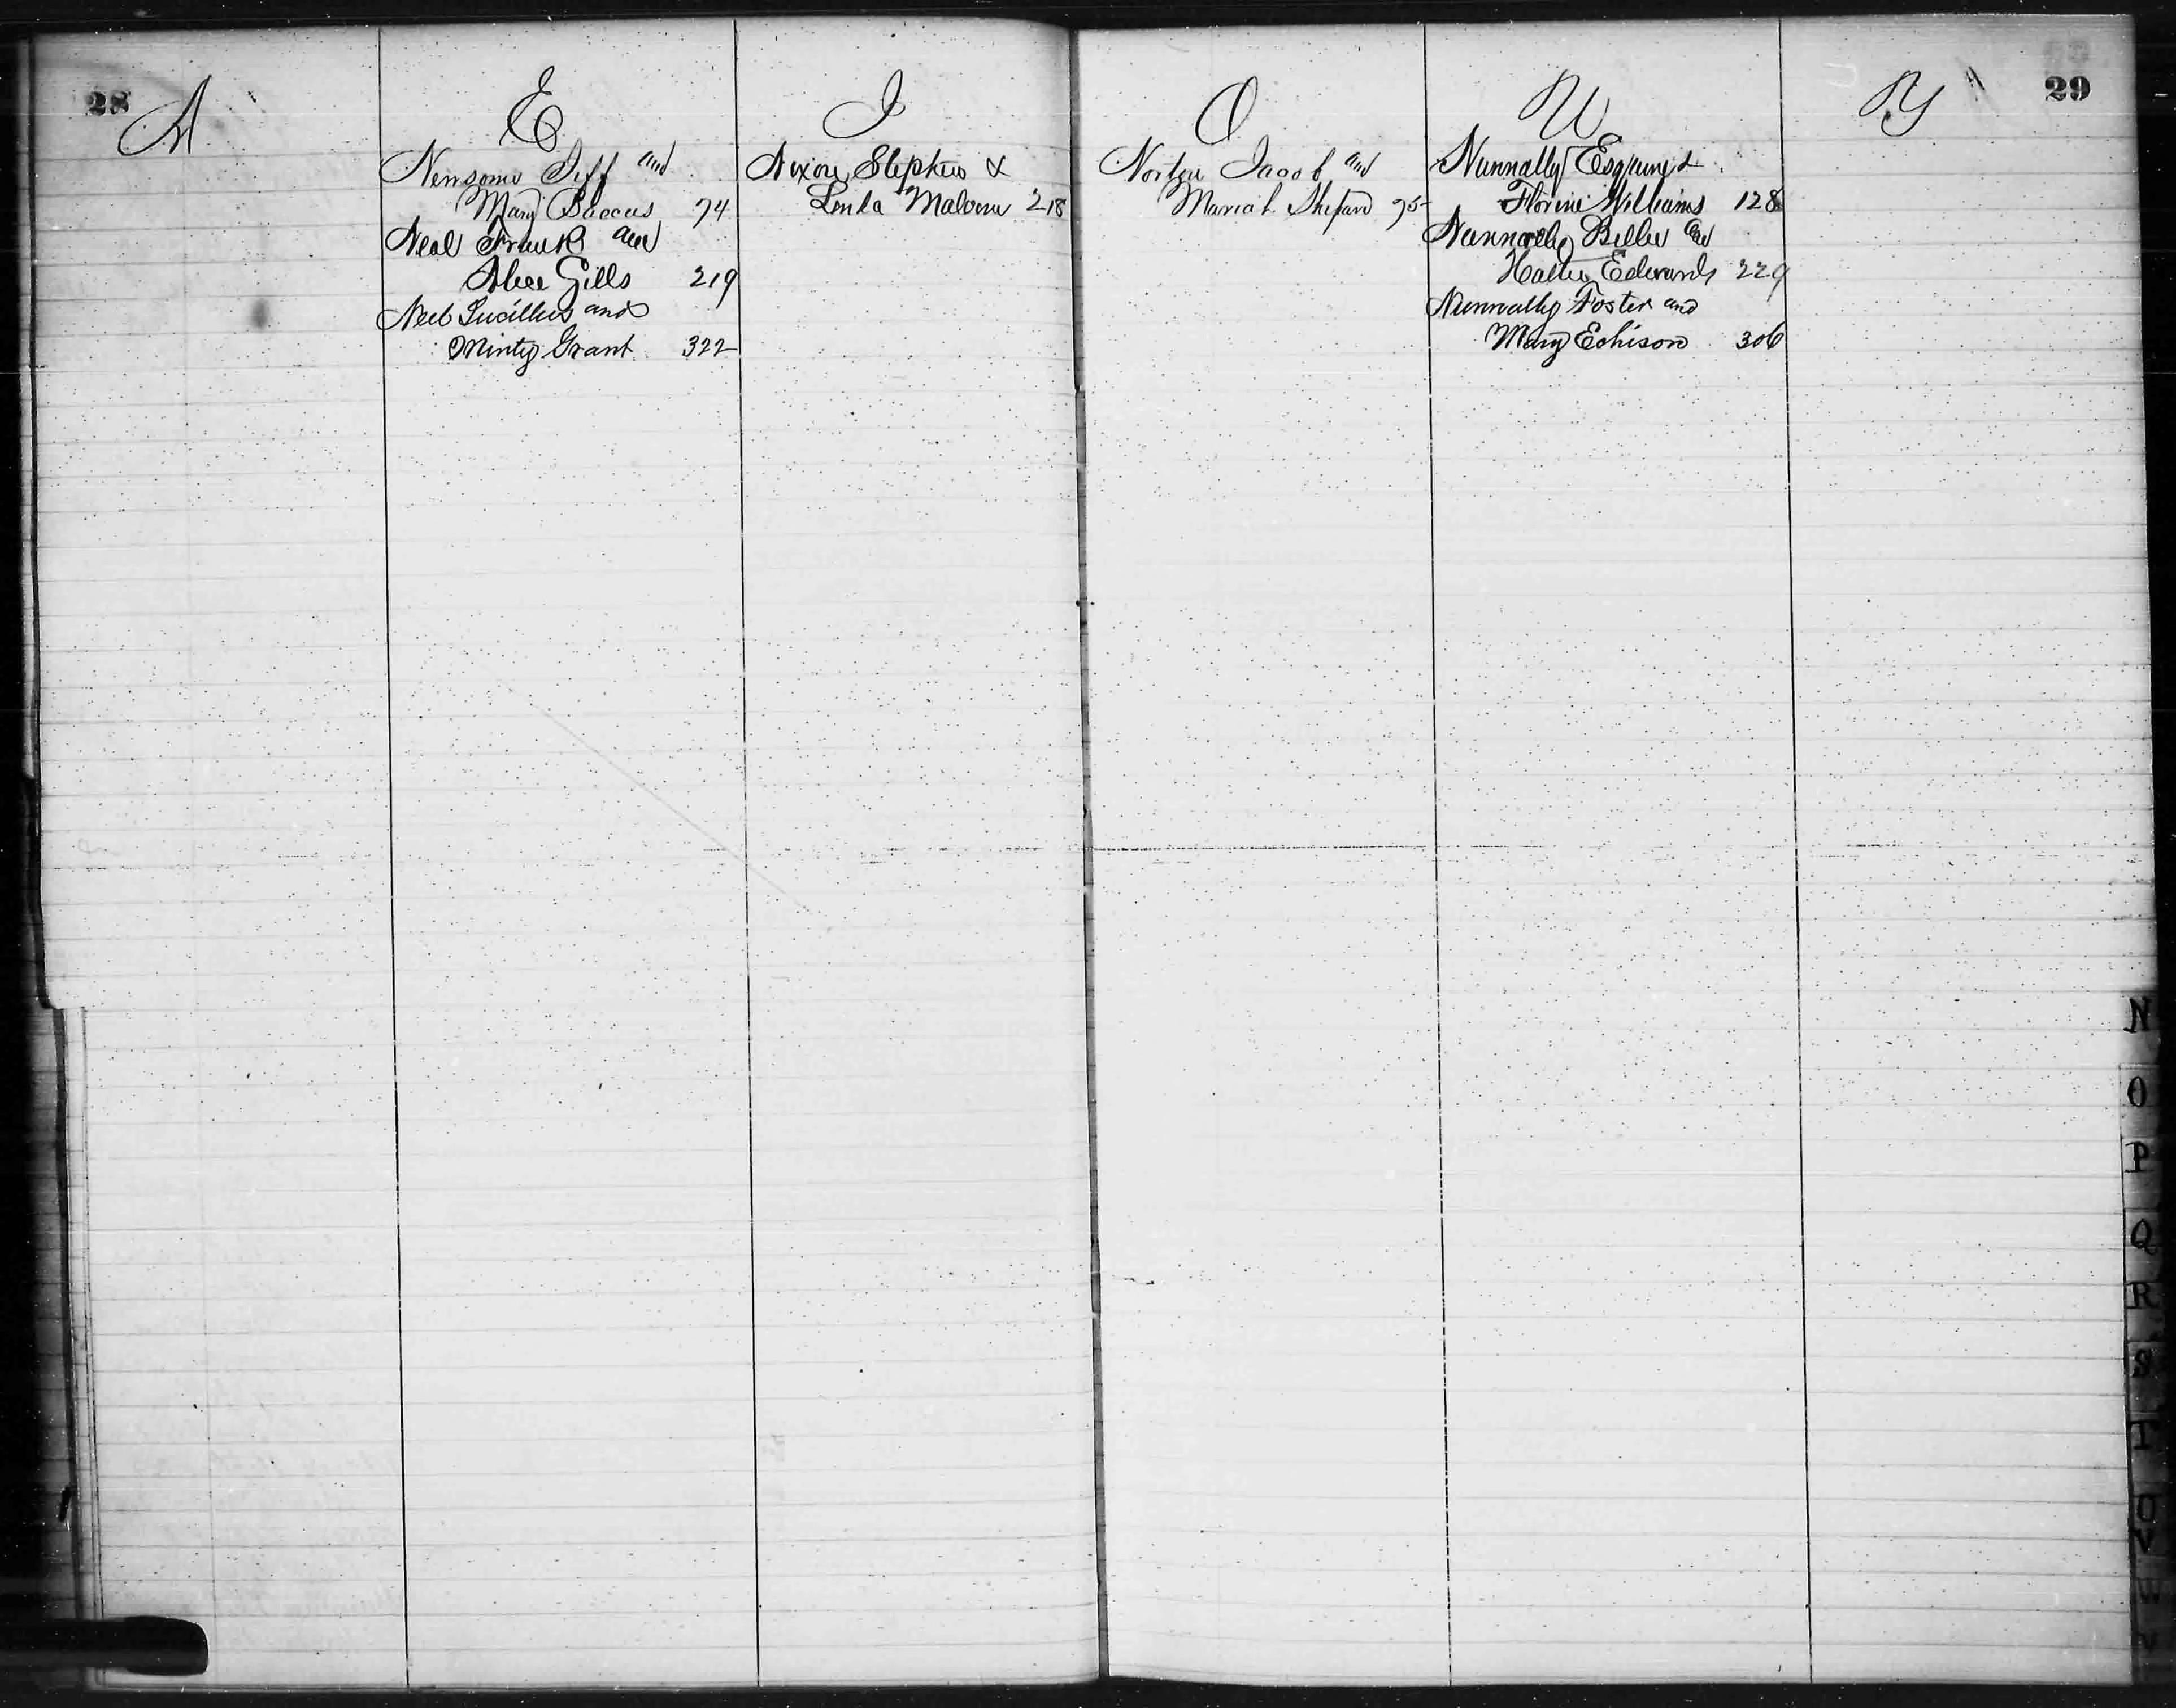 28
A
E
Newsome Jeff and
Mary Baccus 74
Neal Frank and
Alice Gills 219
Neel Lucillus and
Minty Grant 322
I
Nixon Stephen &
Linda Malone 218
O
Norton Jacob and
Mariah Shepard 95
U
Nunnally Esquire &
Florine Williams 128
Nunnally Billie and
Hattie Edwards 229
Nunnally Foster and
Mary Echison 306
Y
29
N
O
P
Q
R
S
T
U
V
W